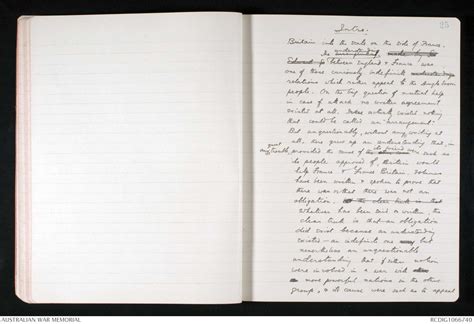 25
Intro:
Britain into the war on the side of France.
The understanding
between England & France was
one of those curiously indefinite
relations which rather appeal to the
people. On the big question of mutual help
in case of attack no written agreement
existed at all. There actually existed nothing
that could be called an "arrangement".
But unquestionably, without any writing at
all, there grew up an understanding that, in
great
any trouble, provided the cause of was such as
the people approved of, Britain would
help France & France Britain. Volumes
have been written & spoken to prove that
there was or that there was not an
obligation.
Whatever has been said & written, the
clear truth is that an obligation
did exist because an understanding
existed - an indefinite one but
nevertheless an unquestionable
understanding that if either nation
were involved in a war with
more powerful nations in the other
group, & the cause were such as to appeal
AUSTRALIAN WAR MEMORIAL
RCDIG1066740